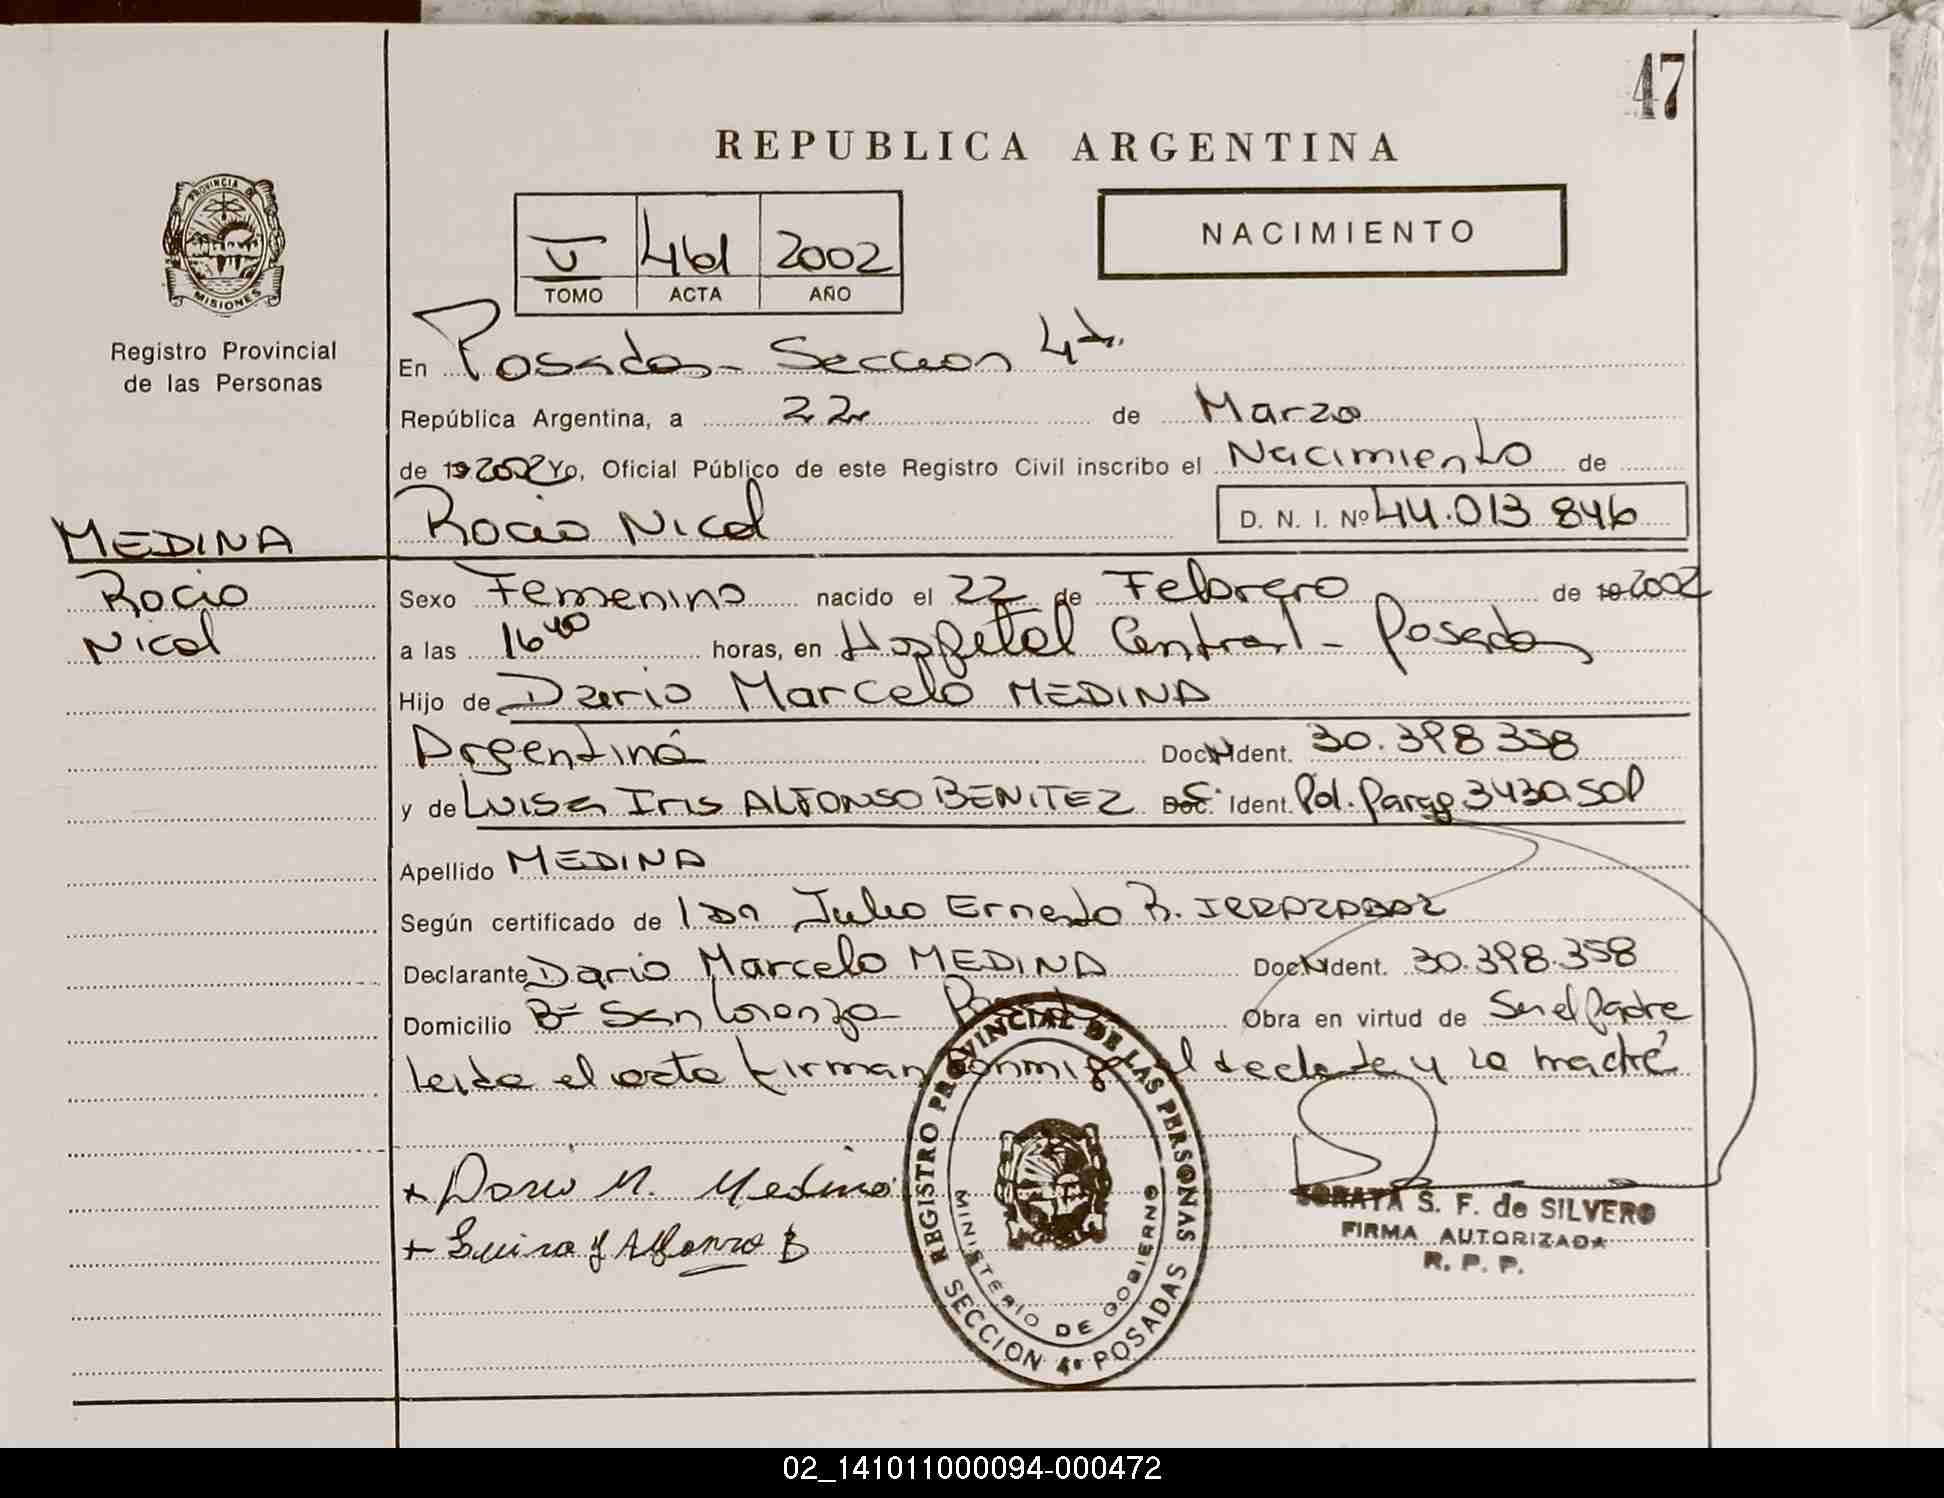 47
REPUBLICA ARGENTINA
PROVINCIA DE
MISIONES
Registro Provincial
de las Personas
V 461 2002
TOMO ACTA AÑO
NACIMIENTO
En Posadas - Seccion 4ta.
República Argentina, a 22 de Marzo
de 19 2002 Yo, Oficial Público de este Registro Civil inscribo el Nacimiento de
Rocio Nicol D. N. I. Nº 44.013 846
MEDINA
Rocio
Nicol
Sexo Femenino nacido el 22 de Febrero de 19 2002
a las 16 40 horas, en Hospital Central - Posadas
Hijo de Dario Marcelo MEDINA
Argentina Doc. Ident. 30.398 358
y de Luisa Iris ALFONSO BENITEZ Doc. Ident. Pol. Parag 3430501
Apellido MEDINA
Según certificado de Julio Ernesto R. IRRAZABAL
Declarante Dario Marcelo MEDINA Doc. Ident. 30.398.358
Domicilio Bº San Lorenzo Obra en virtud de Ser el Padre
leida el acta firman conmigo el y la madre
+ Dario M. Medina
+ Luisa Y Alfonzo B
REGISTRO PROVINCIAL DE LAS PERSONAS
MINISTERIO DE GOBIERNO
SECCION 4ª POSADAS
SORAYA S. F. de SILVERO
FIRMA AUTORIZADA
R. P. P.
02_141011000094-000472